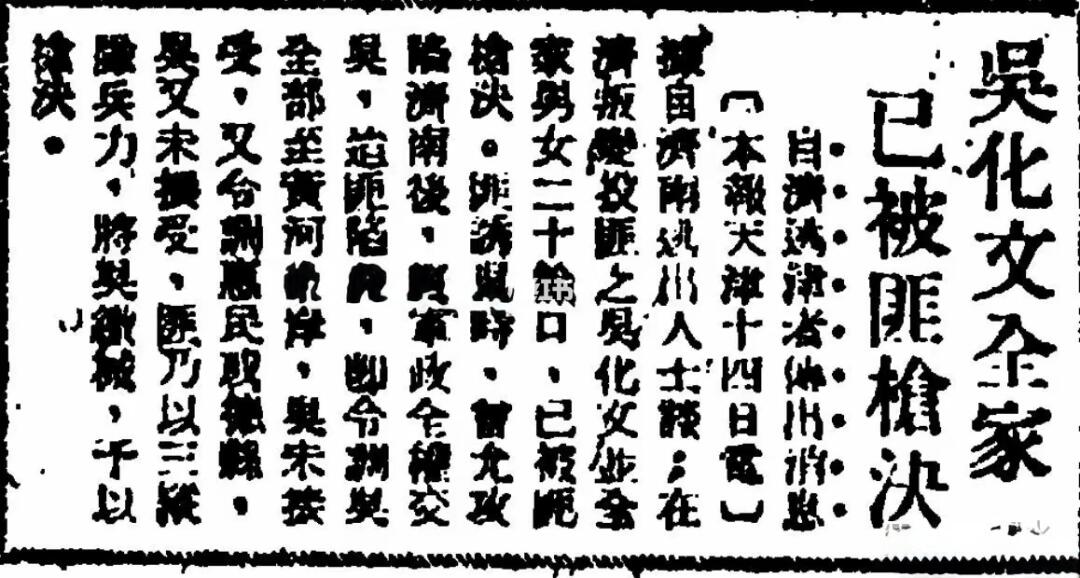 吳化文全家
已被匪槍決
自濟逃津者傳出消息
【本報天津十四日電】
據自濟南逃出人士談：在
濟叛變投匪之吳化文並全
家男女二十餘口，已被匪
槍決。匪誘吳時，曾允攻
陷濟南後，軍政全權交
吳，迨匪陷，令調吳
全部至黃河岸，吳未接
受，又令民
吳又未接受，匪乃以三縱
隊兵力，將吳繳械，予以
槍決。
红书